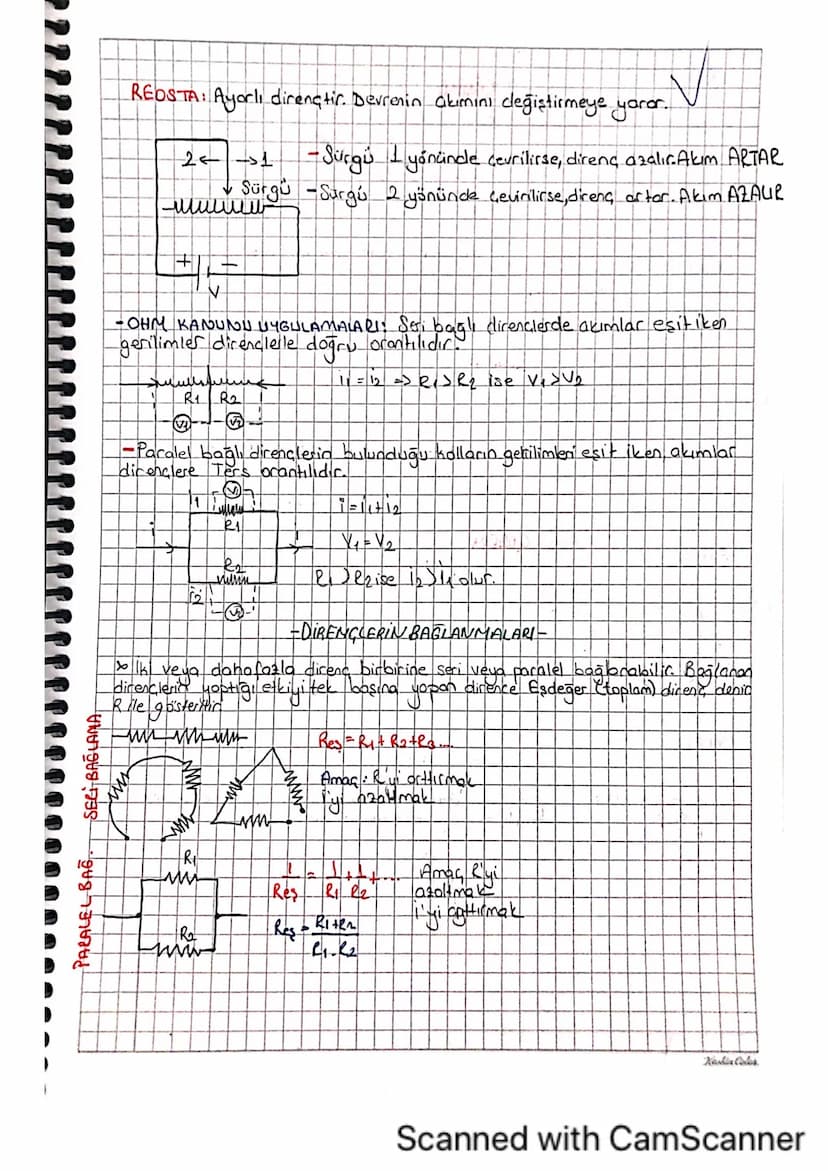 REOSTA: Ayarlı dirençtir. Devrenin akımını değiştirmeye yarar.
2← →1
↓ Sürgü
+ -
V
- Sürgü 1 yönünde çevrilirse, direnç azalır. Akım ARTAR
- Sürgü 2 yönünde çevirilirse, direnç artar. Akım AZALIR
- OHM KANUNU UYGULAMALARI: Seri bağlı dirençlerde akımlar eşit iken
gerilimler dirençlelle doğru orantılıdır.
R1 R2
V1 V2
i1 = i2 => R1>R2 ise V1>V2
- Paralel bağlı dirençlerin bulunduğu kolların gerilimleri eşit iken, akımlar
dirençlere Ters orantılıdır.
V1
i1
R1
i i
R2
i2
V2
i = i1+i2
V1 = V2
R1 > R2 ise i2 > i1 olur.
- DİRENÇLERİN BAĞLANMALARI -
* İki veya daha fazla direnç birbirine seri veya paralel bağlanabilir. Bağlanan
dirençlerin yaptığı etkiyi tek başına yapan dirence Eşdeğer (toplam) direnç denir
R ile gösterilir
SERİ BAĞLAMA
Reş = R1 + R2 + R3...
Amaç: R'yi arttırmak
i'yi azaltmak
PARALEL BAĞ.
R1
R2
1/Reş = 1/R1 + 1/R2 + ...
Reş = R1+R2 / R1.R2
Amaç R'yi
azaltmak
i'yi arttırmak
Scanned with CamScanner